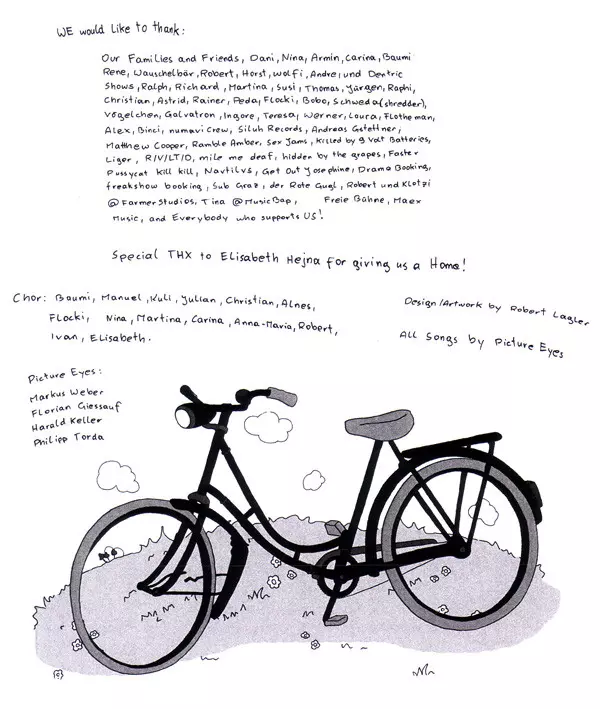 WE would like to thank:
Our Families and Friends, Dani, Nina, Armin, Carina, Baumi
Rene, Wauschelbär, Robert, Horst, Wolfi, Andre, und Dentric
Shows, Ralph, Richard, Martina, Susi, Thomas, Jürgen, Raphi,
Christian, Astrid, Rainer, Peda, Flocki, Bobo, Schweda (shredder),
Vögelchen, Galvatron, Ingore, Teresa, Werner, Laura, Flotheman,
Alex, Binci, numavi Crew, Siluh Records, Andreas Gstettner,
Matthew Cooper, Ramble Amber, Sex Jams, Killed by 9 Volt Batteries,
Liger, R/V/LT/D, mile me deaf, hidden by the grapes, Faster
Pussycat kill kill, Navtilvs, Get Out Josephine, Drama Booking,
freakshow booking, Sub Graz, der Rote Gugl, Robert und Klotzi
@ Farmer Studios, Tina @ Music Bap, Freie Bühne, Maex
Music, and Everybody who supports US!
Special THX to Elisabeth Hejna for giving us a Home!
Chor: Baumi, Manuel, Kuli, Julian, Christian, Alnes,
Flocki, Nina, Martina, Carina, Anna-Maria, Robert,
Ivan, Elisabeth.
Design/Artwork by Robert Lagler
All Songs by Picture Eyes
Picture Eyes:
Markus Weber
Florian Giessauf
Harald Keller
Philipp Torda